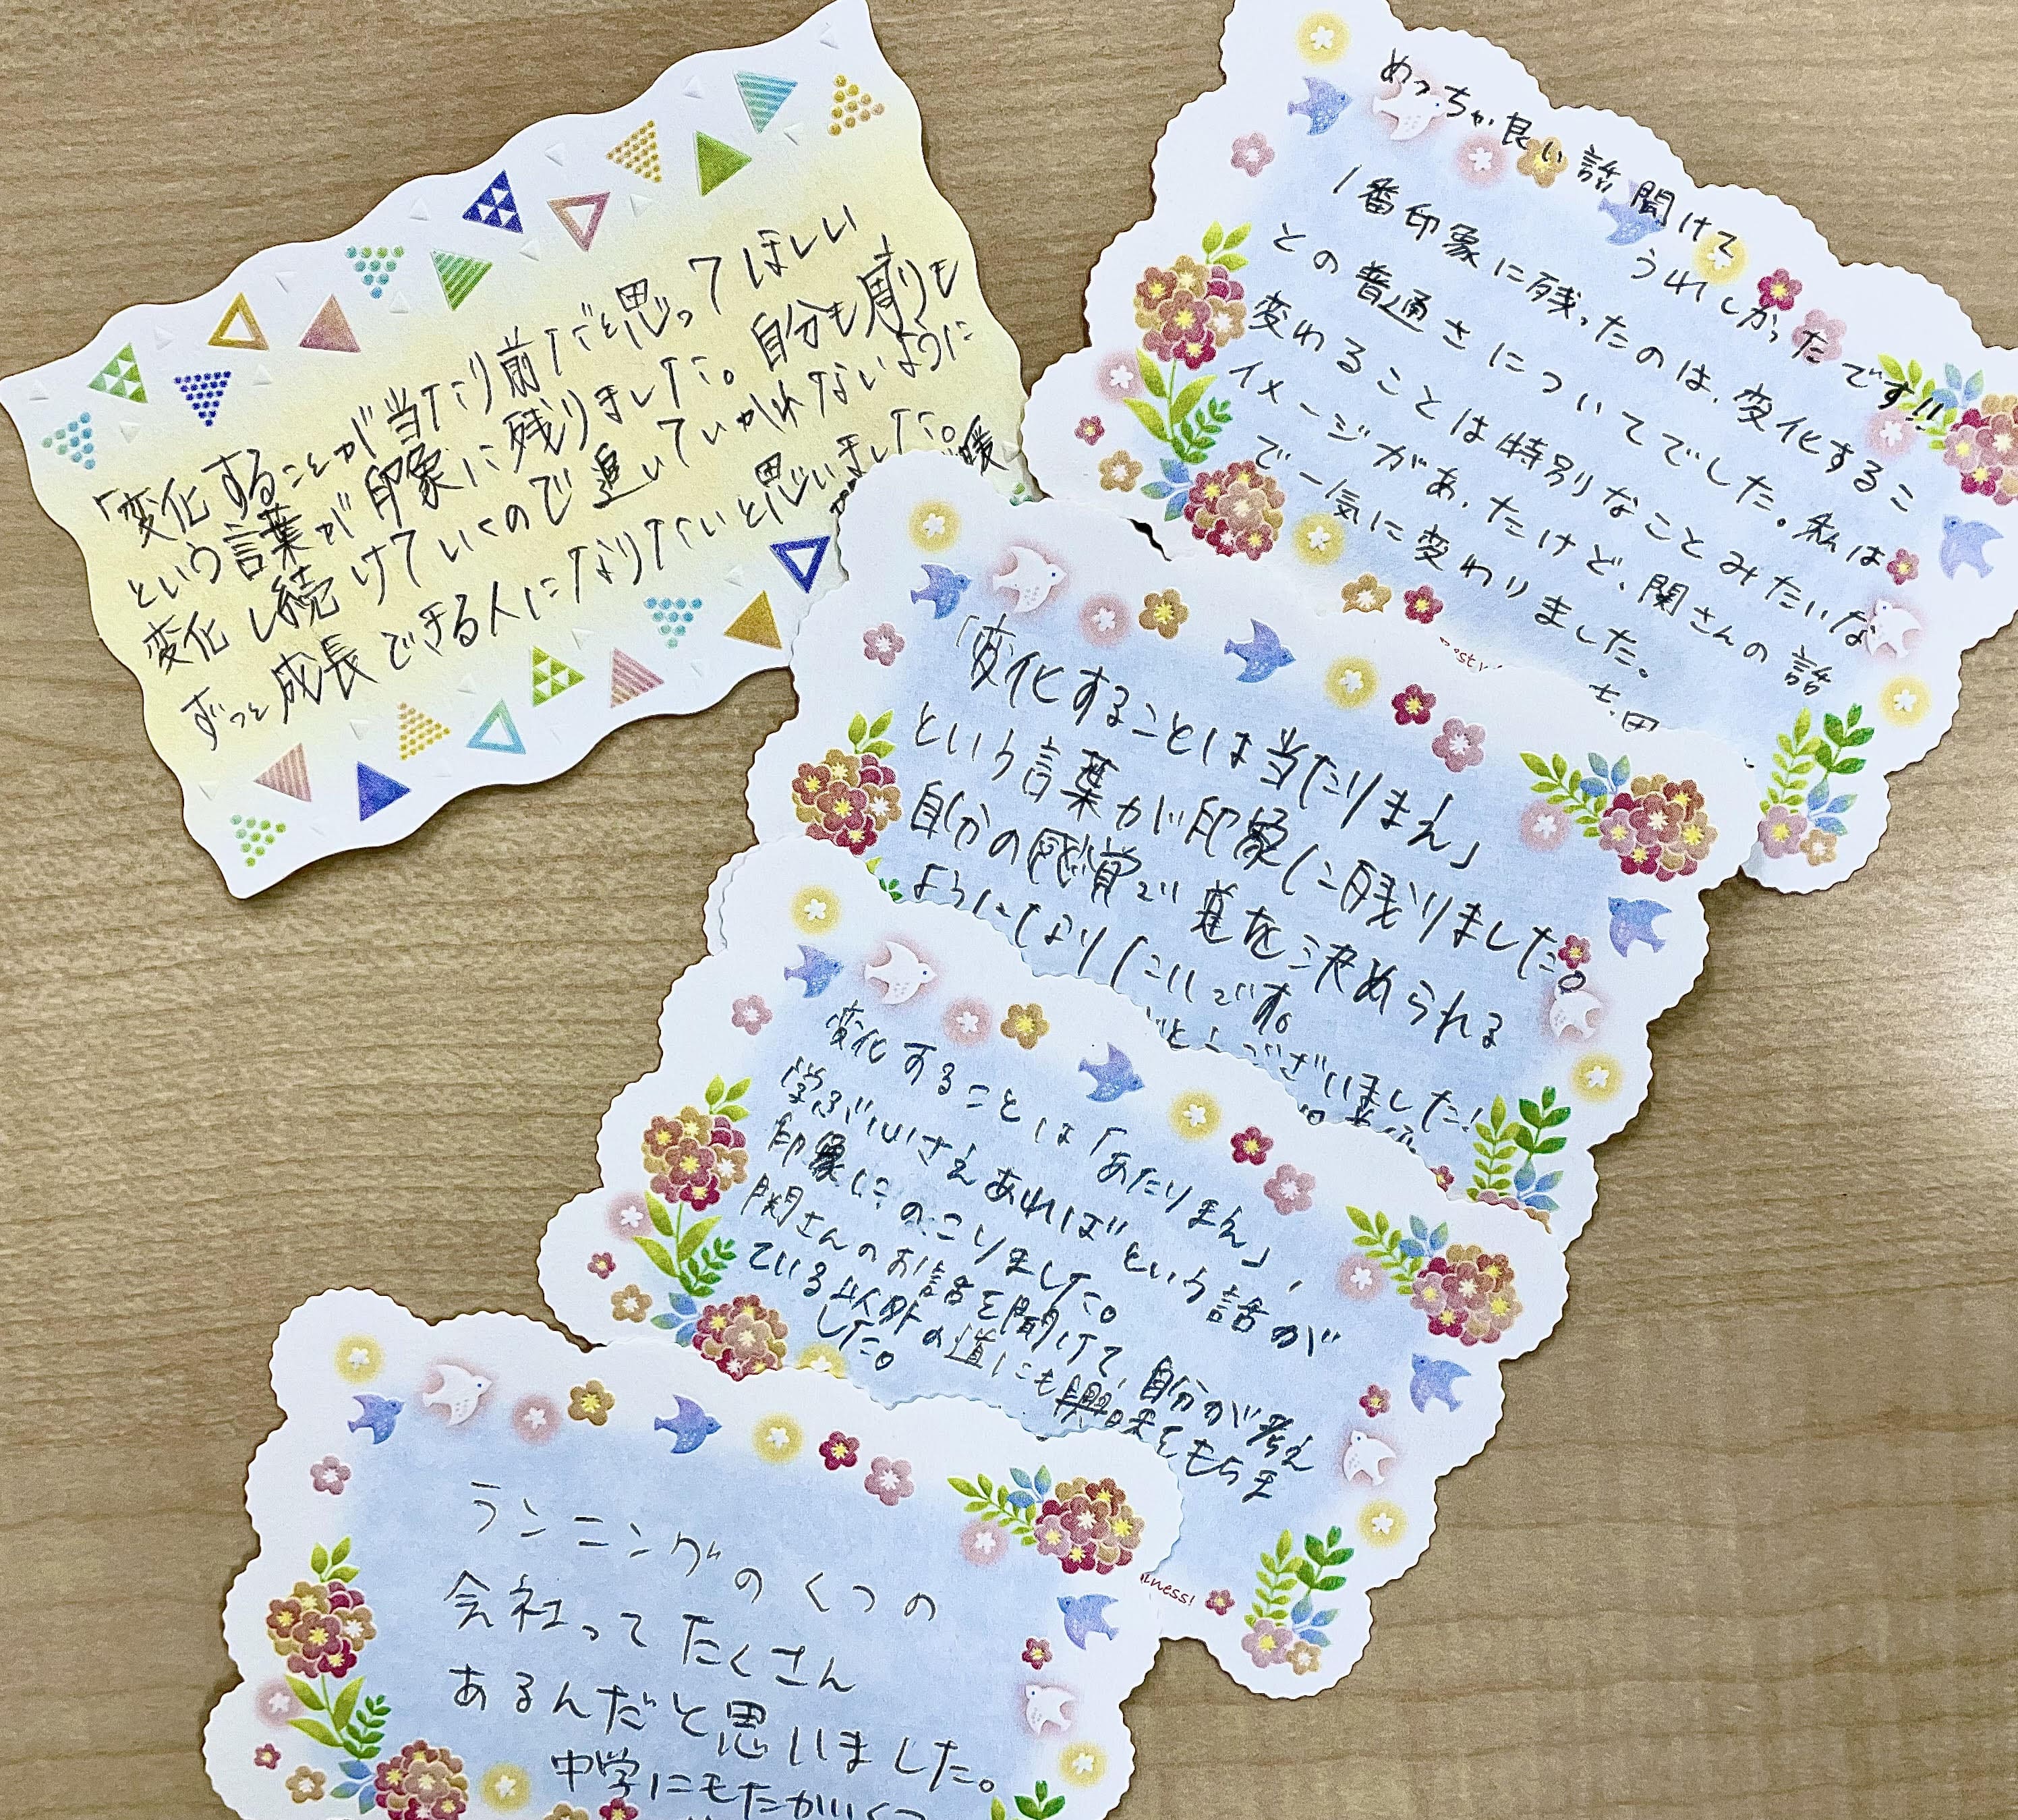 「変化することが当たり前だと思ってほしい
という言葉が印象に残りました。自分も周りも
変化し続けていくので追いていかれないように
ずっと成長できる人になりたいと思いました。
暖
めっちゃ良い話聞けて
うれしかったです!!
1番印象に残ったのは、変化するこ
との普通さについてでした。私は
変わることは特別なことみたいな
イメージがあったけど、関さんの話
で一気に変わりました。
「変化することは当たりまえ」
という言葉が印象に残りました。
自分の感覚で道を決められる
ようになりたいです。
ございました!
変化することは「あたりまえ」、
学ぶ心さえあればという話が
印象にのこりました。
関さんのお話を聞けて、自分が考え
ている以外の道にも興味をもちま
した。
ness!
ランニングのくつの
会社ってたくさん
あるんだと思いました。
中学にもたかいくつ